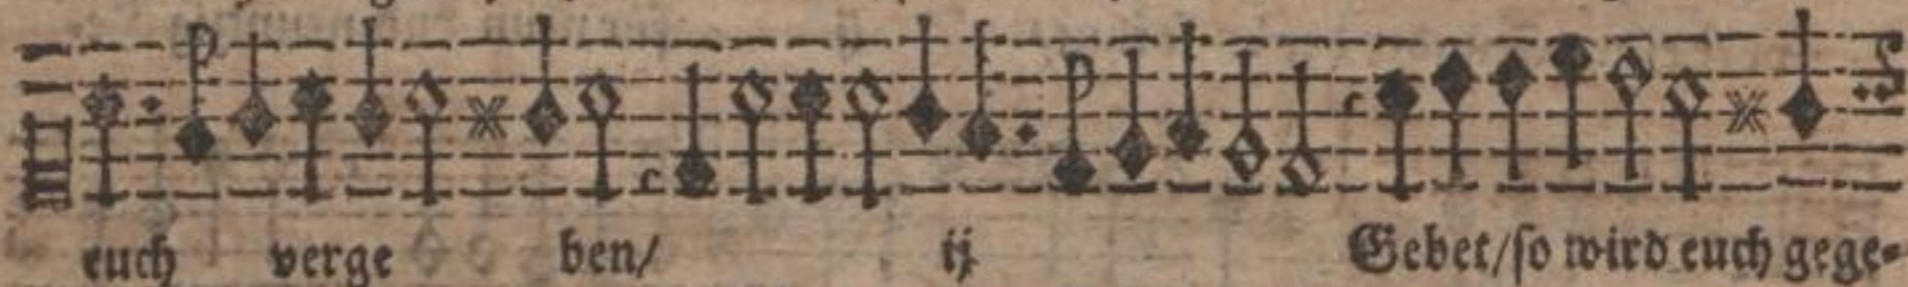 euch verge ben/ ij Gebet/ſo wird euch gege⸗